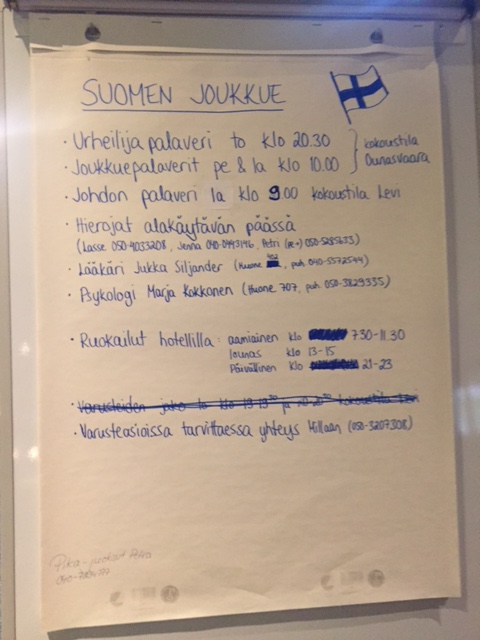 SUOMEN JOUKKUE
· Urheilijapalaveri to klo 20.30
· Joukkuepalaverit pe & la klo 10.00
kokoustila
Ounasvaara
· Johdon palaveri la klo 9.00 kokoustila Levi
· Hierojat alakäytävän päässä
(Lasse 050-4033208, Jenna 040-0993146, Petri (pe→) 050-5285633)
· Lääkäri Jukka Siljander (Huone, puh. 040-5572544)
· Psykologi Marja Kokkonen (Huone 707, puh. 050-3829335)
· Ruokailut hotellilla: aamiainen klo 7.30-11.30
lounas klo 13-15
Päivällinen klo 21-23
· Varusteiden jako to klo kokoustila Levi
· Varusteasioissa tarvittaessa yhteys Millaan (050-3207308)
Pika-juoksut